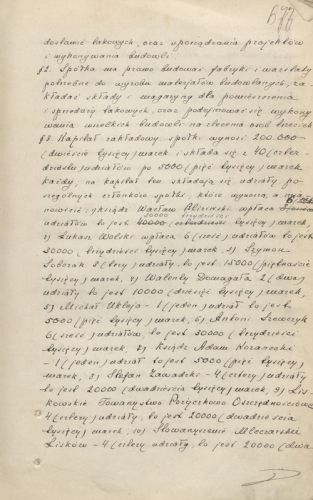 677
dostawie takowych, oraz sporządzania projektów
i wykonywania budowli.
§2. Spółka ma prawo budować fabryki i warsztaty
potrzebne do wyrobu materjałów budowlanych, za
kładać składy i magazyny dla pomieszczenia
i sprzedaży takowych, oraz podejmować się wykony
wania wszelkich budowli na zlecenia osób trzecich
Kapitał zakładowy spółki wynosi 200.000
(dwieście tysięcy) marek i składa się z 40 (czter
dziestu) udziałów po 5000 (pięć tysięcy) marek
każdy; na kapitał ten składają się udziały po
szególnych członków spółki, które wynoszą, a mia
nowicie: Ksiądz Wacław wpłaca
30000 trzydzieści
udziałów to jest 40000 tysięcy) marek,
2) Łukasz Wolski wpłaca 6 (sześć) udziałów to jest
30000 (trzydzieści tysięcy) marek, 3) Szymon
Soborak 3 (trzy) udziały, to jest 15000 (piętnaście
tysięcy) marek, 4) Walenty Domagała 2 (dwa)
udziały to jest 10000 (dziesięć tysięcy) marek,
5) Michał - 1 (jeden) udział to jest
5000 (pięć tysięcy) marek, 6) Antoni Szewczyk
6 (sześć) udziałów, to jest 30000 (trzydzieści
tysięcy) marek, 7) Ksiądz Adam
- 1 (jeden) udział to jest 5000 (pięć tysięcy)
marek, 8) Stefan Zawadzki - 4 (cztery) udziały
to jest 20000 (dwadzieścia tysięcy) marek, 9) Lis-
kowskie Towarzystwo Pożyczkowo Oszczędnościowe
4 (cztery) udziały, to jest 20000 (dwadzieścia
tysięcy) marek, 10) Stowarzyszenie Mleczarskie
Lisków - 4 (cztery udziały, to jest 20000 (dwa